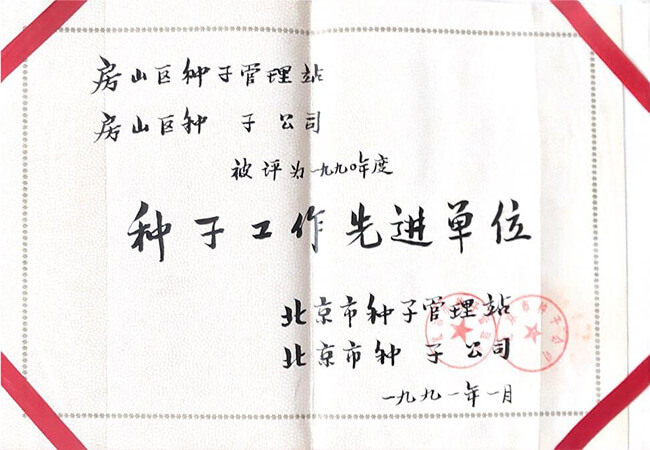 房山区种子管理站
房山区种子公司
被评为一九九〇年度
种子工作先进单位
北京市种子管理站
北京市种子公司
一九九一年一月